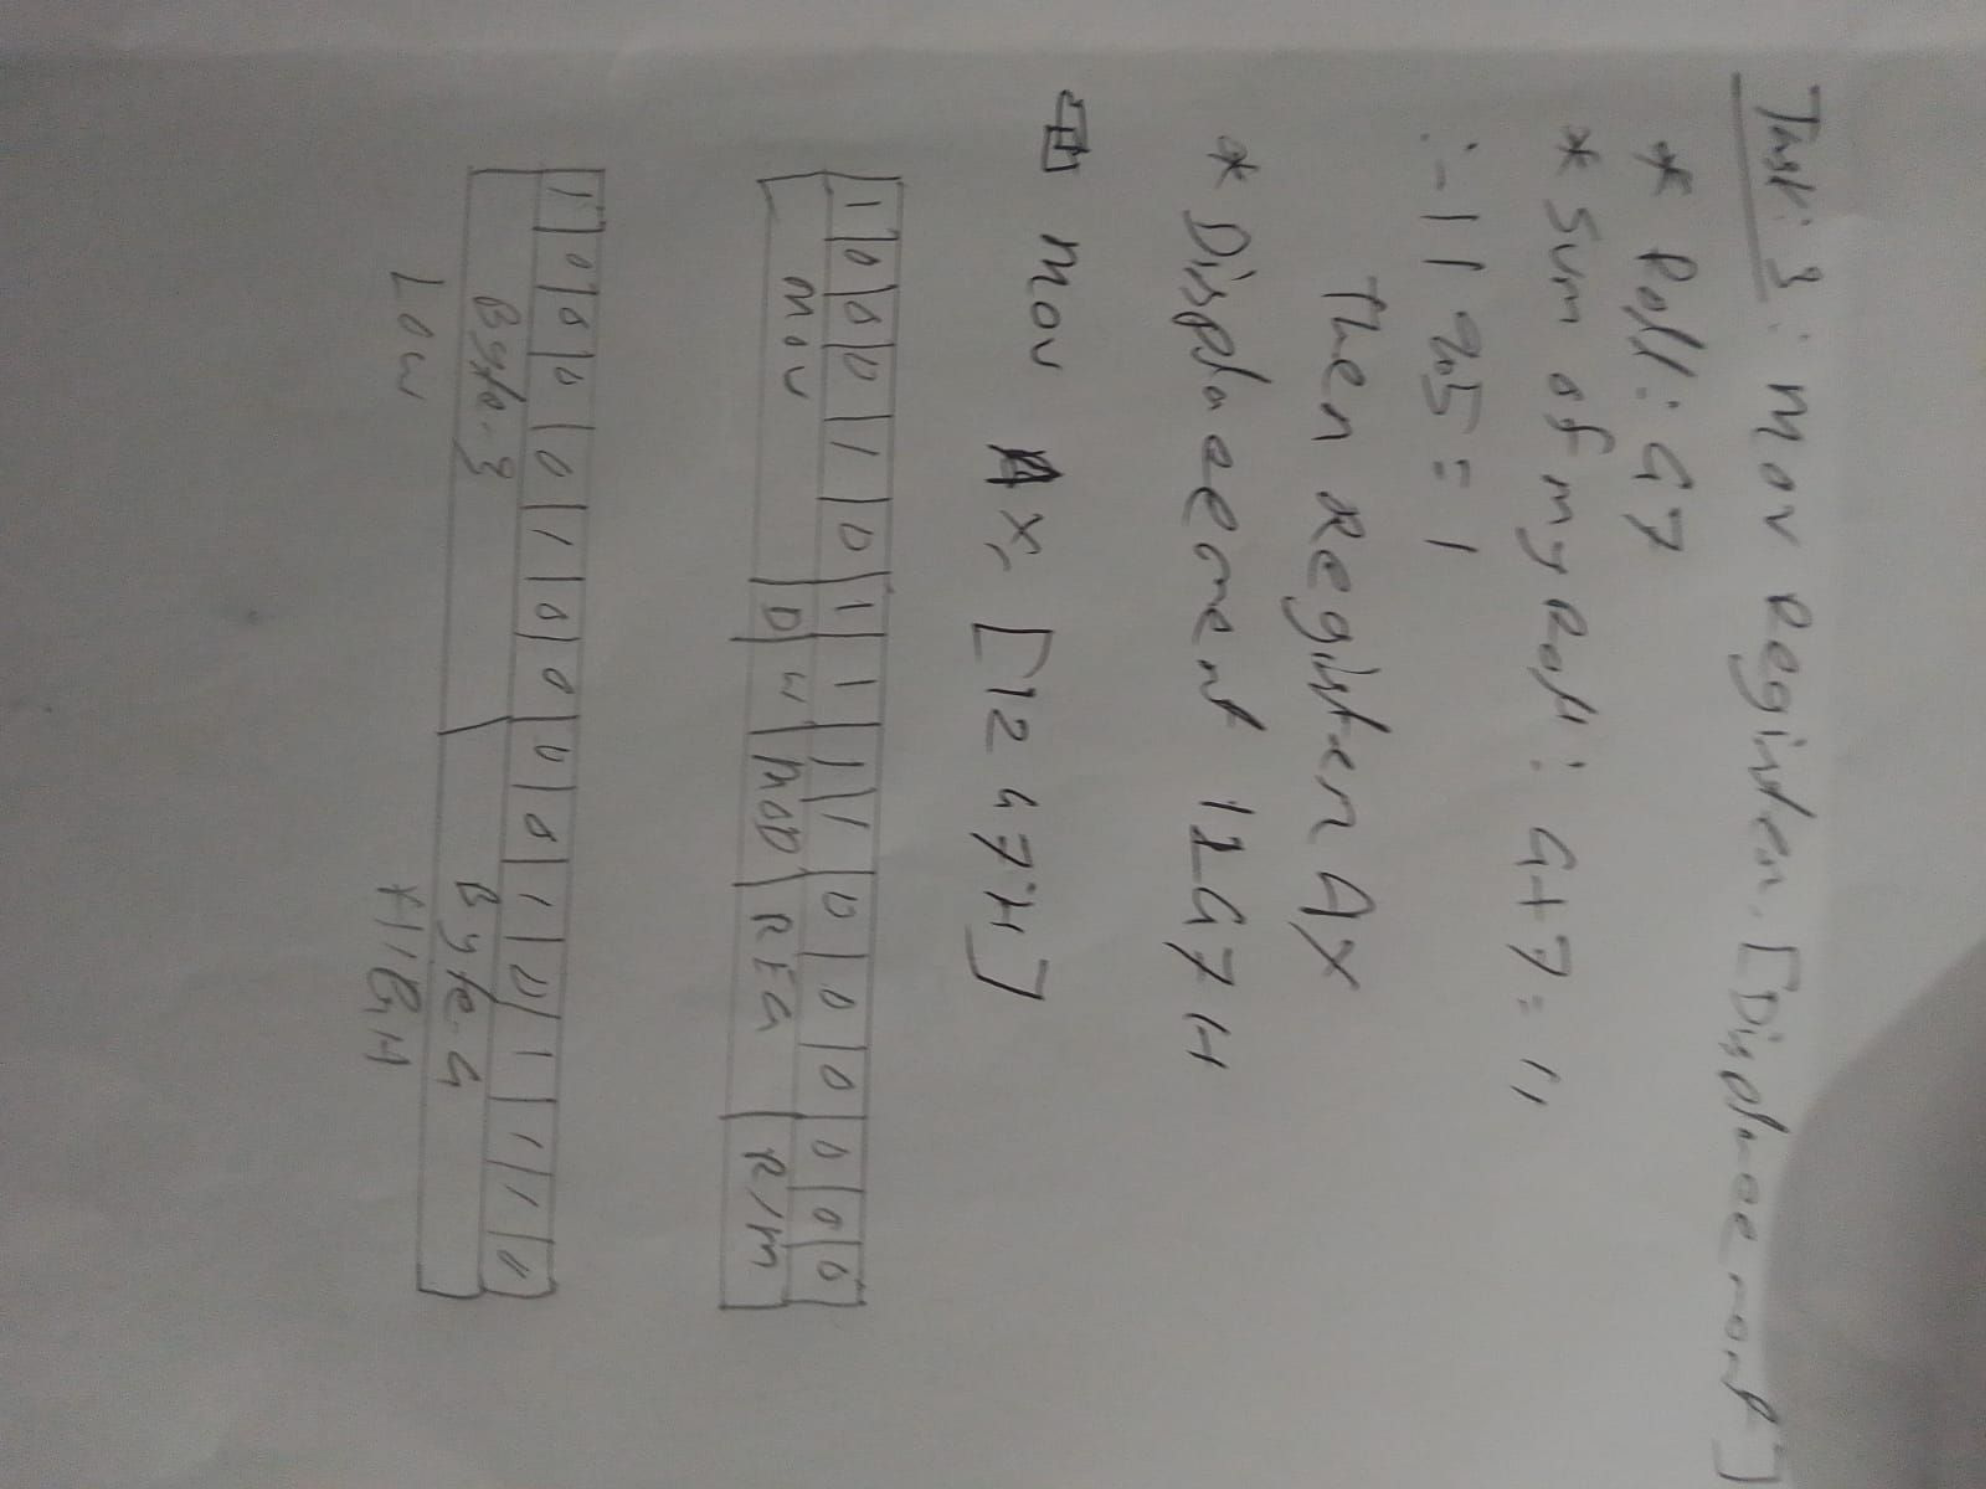 Task: 3: mov Register, [Displacement]
* Roll: 47
* Sum of my Roll: 4+7=11
∴ 11 % 5 = 1
Then Register AX
* Displacement 1247H
mov AX, [1247H]
1 0 0 0 1 0 1 1 1 1 0 0 0 0 0 0
mov D W MOD REG R/M
1 0 0 0 0 1 0 0 0 0 1 0 1 1 1 0
Byte-3 Byte-4
LOW HIGH